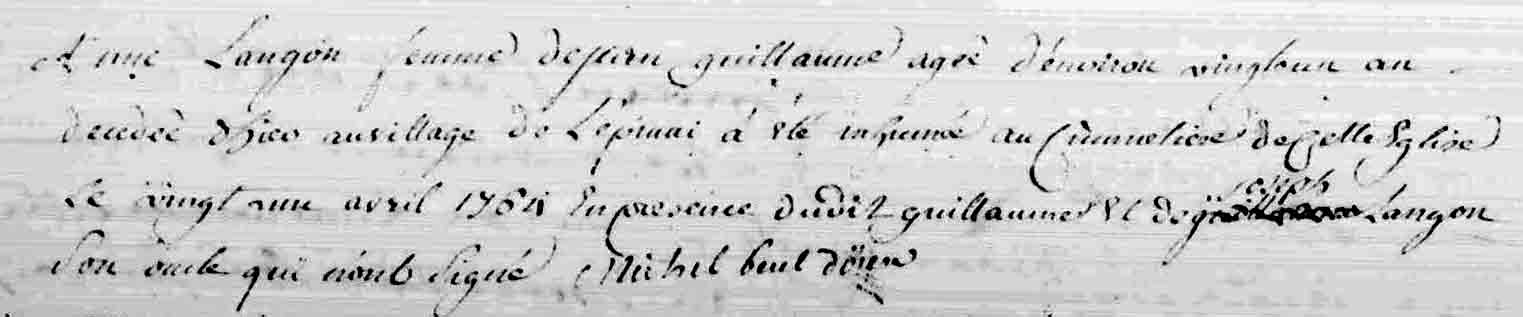 Anne Langon femme de jean guillaume agèè d'environ vingt un an
decedeè d'hier au village de L'épinai à été inhumée au Cimmetiere de Cette Eglise
Le vingt un avril 1764 En presence dudit guillaume Et de joseph Langon
Son oncle qui n'ont Signé Michel